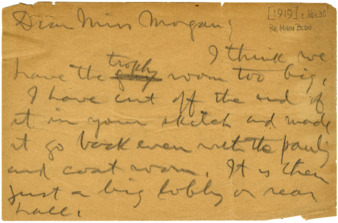 [1919]
Re Main Bldg.
Dear Miss Morgan;
I think we
trophy
have the room too big.
I have cut off the end of
it in your sketch and made
it go back even with the pantry
and coat room. It is then
just a big lobby or rear
hall.